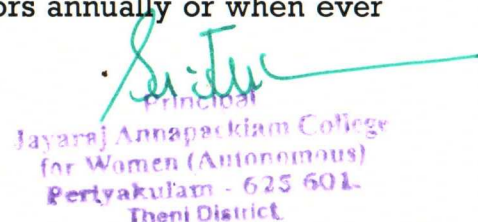 ors annually or when ever
Principal
Jayaraj Annapackiam College
for Women (Autonomous)
Periyakulam - 625 601.
Theni District